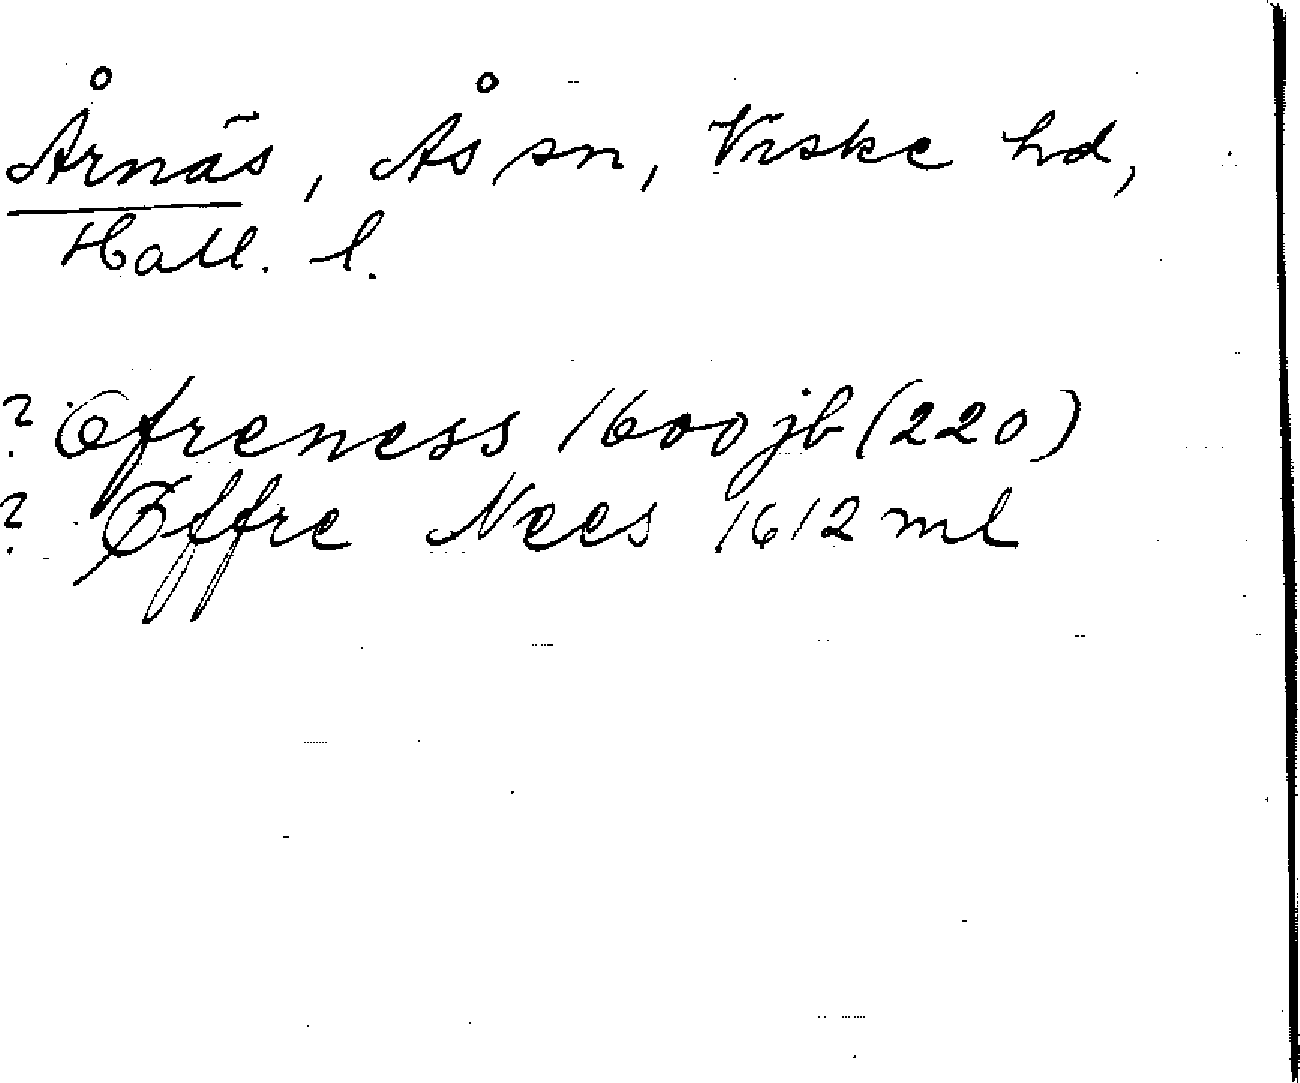 Årnäs, Ås sn, Viske hd,
Hall. l.
? Öfreness 1600 jb (220)
? Øffre Nees 1612 ml